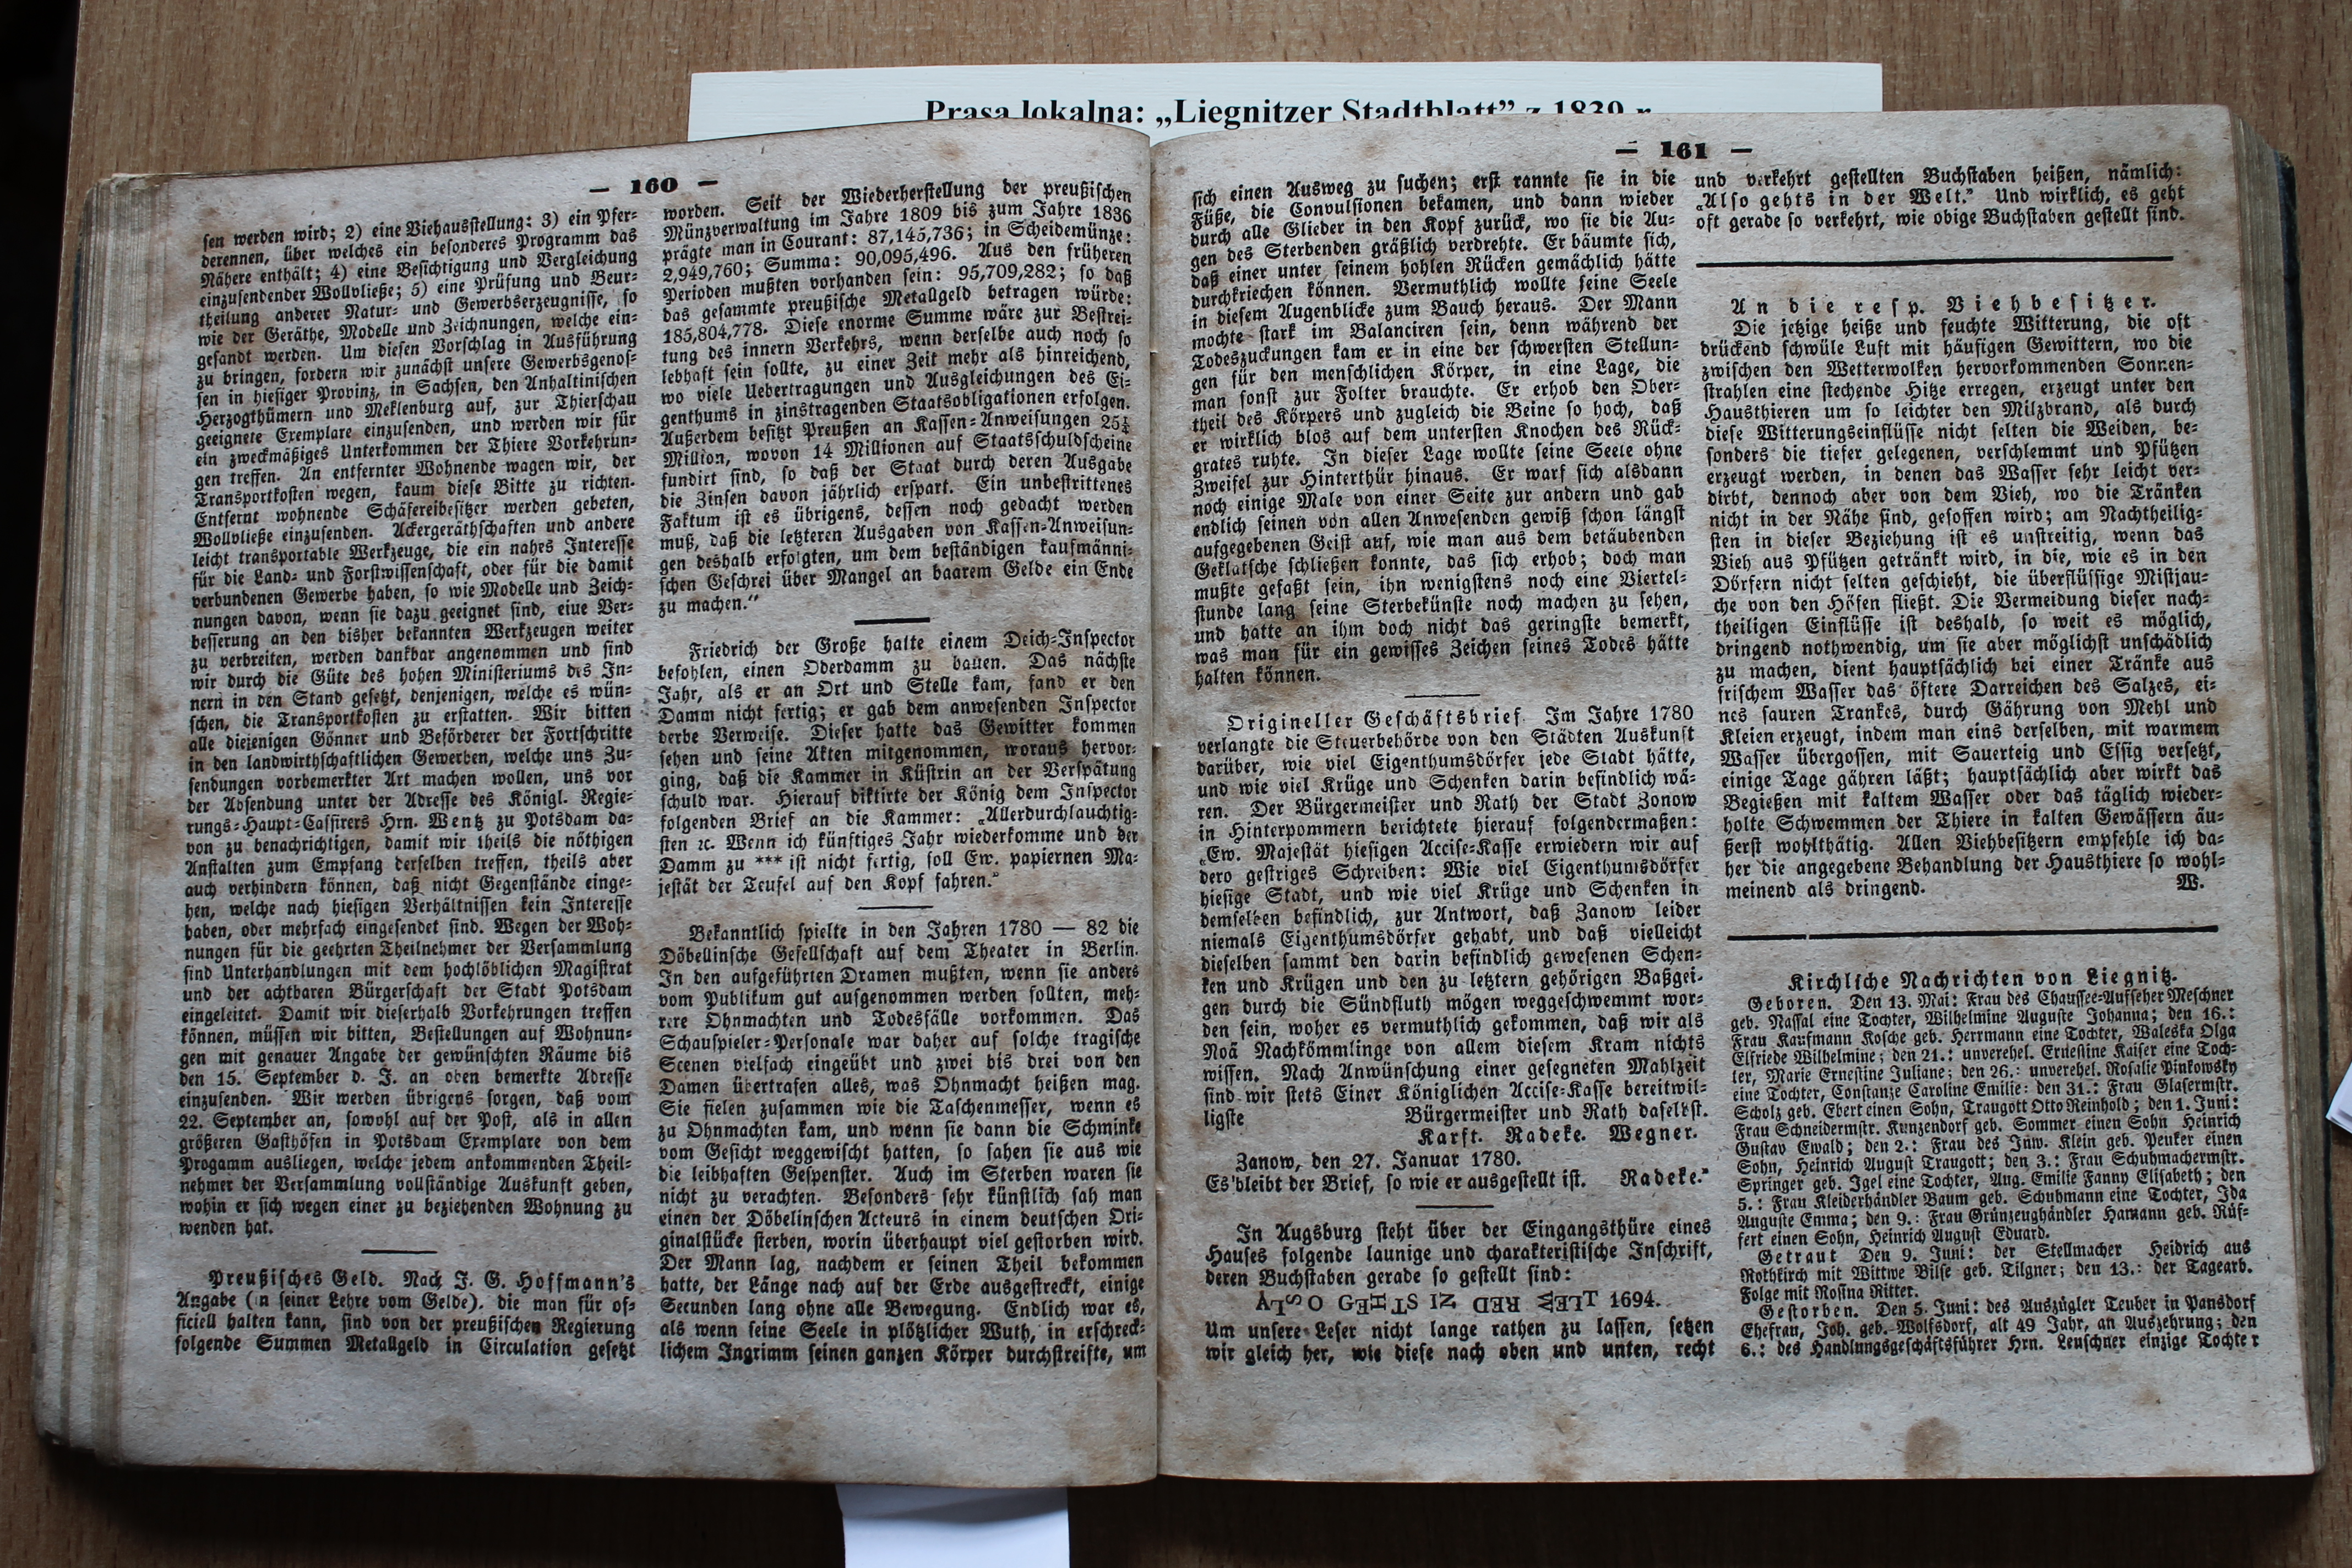 Prasa lokalna: „Liegnitzer Stadtblatt” z 1839 r.
— 160 —
sen werden wird; 2) eine Viehausstellung: 3) ein Pfer-
derennen, über welches ein besonderes Programm das
Nähere enthält; 4) eine Besichtigung und Vergleichung
einzusendender Wollvließe; 5) eine Prüfung und Beur-
theilung anderer Natur- und Gewerbserzeugnisse, so
wie der Geräthe, Modelle und Zeichnungen, welche ein-
gesandt werden. Um diesen Vorschlag in Ausführung
zu bringen, fordern wir zunächst unsere Gewerbsgenos-
sen in hiesiger Provinz, in Sachsen, den Anhaltinischen
Herzogthümern und Meklenburg auf, zur Thierschau
geeignete Exemplare einzusenden, und werden wir für
ein zweckmäßiges Unterkommen der Thiere Vorkehrun-
gen treffen. An entfernter Wohnende wagen wir, der
Transportkosten wegen, kaum diese Bitte zu richten.
Entfernt wohnende Schäfereibesitzer werden gebeten,
Wollvließe einzusenden. Ackergeräthschaften und andere
leicht transportable Werkzeuge, die ein nahes Interesse
für die Land- und Forstwissenschaft, oder für die damit
verbundenen Gewerbe haben, so wie Modelle und Zeich-
nungen davon, wenn sie dazu geeignet sind, eiue Ver-
besserung an den bisher bekannten Werkzeugen weiter
zu verbreiten, werden dankbar angenommen und sind
wir durch die Güte des hohen Ministeriums des In-
nern in den Stand gesetzt, denjenigen, welche es wün-
schen, die Transportkosten zu erstatten. Wir bitten
alle diejenigen Gönner und Beförderer der Fortschritte
in den landwirthschaftlichen Gewerben, welche uns Zu-
sendungen vorbemerkter Art machen wollen, uns vor
der Absendung unter der Adresse des Königl. Regie-
rungs-Haupt-Cassirers Hrn. Wentz zu Potsdam da-
von zu benachrichtigen, damit wir theils die nöthigen
Anstalten zum Empfang derselben treffen, theils aber
auch verhindern können, daß nicht Gegenstände einge-
hen, welche nach hiesigen Verhältnissen kein Interesse
haben, oder mehrfach eingesendet sind. Wegen der Woh-
nungen für die geehrten Theilnehmer der Versammlung
sind Unterhandlungen mit dem hochlöblichen Magistrat
und der achtbaren Bürgerschaft der Stadt Potsdam
eingeleitet. Damit wir dieserhalb Vorkehrungen treffen
können, müssen wir bitten, Bestellungen auf Wohnun-
gen mit genauer Angabe der gewünschten Räume bis
den 15. September d. J. an oben bemerkte Adresse
einzusenden. Wir werden übrigens sorgen, daß vom
22. September an, sowohl auf der Post, als in allen
größeren Gasthöfen in Potsdam Exemplare von dem
Progamm ausliegen, welche jedem ankommenden Theil-
nehmer der Versammlung vollständige Auskunft geben,
wohin er sich wegen einer zu beziehenden Wohnung zu
wenden hat.
Preußisches Geld. Nach J. G. Hoffmann's
Angabe (in seiner Lehre vom Gelde). die man für of-
ficiell halten kann, sind von der preußischen Regierung
folgende Summen Metallgeld in Circulation gesetzt
worden. Seit der Wiederherstellung der preußischen
Münzverwaltung im Jahre 1809 bis zum Jahre 1836
prägte man in Courant: 87,145,736; in Scheidemünze:
2,949,760; Summa: 90,095,496. Aus den früheren
Perioden mußten vorhanden sein: 95,709,282; so daß
das gesammte preußische Metallgeld betragen würde:
185,804,778. Diese enorme Summe wäre zur Bestrei-
tung des innern Verkehrs, wenn derselbe auch noch so
lebhaft sein sollte, zu einer Zeit mehr als hinreichend,
wo viele Uebertragungen und Ausgleichungen des Ei-
genthums in zinstragenden Staatsobligationen erfolgen.
Außerdem besitzt Preußen an Kassen-Anweisungen 25¼
Million, wovon 14 Millionen auf Staatsschuldscheine
fundirt sind, so daß der Staat durch deren Ausgabe
die Zinsen davon jährlich erspart. Ein unbestrittenes
Faktum ist es übrigens, dessen noch gedacht werden
muß, daß die letzteren Ausgaben von Kassen-Anweisun-
gen deshalb erfolgten, um dem beständigen kaufmänni-
schen Geschrei über Mangel an baarem Gelde ein Ende
zu machen.“
Friedrich der Große halte einem Deich-Inspector
befohlen, einen Oderdamm zu bauen. Das nächste
Jahr, als er an Ort und Stelle kam, fand er den
Damm nicht fertig; er gab dem anwesenden Inspector
derbe Verweise. Dieser hatte das Gewitter kommen
sehen und seine Akten mitgenommen, woraus hervor-
ging, daß die Kammer in Küstrin an der Verspätung
schuld war. Hierauf diktirte der König dem Inspector
folgenden Brief an die Kammer: „Allerdurchlauchtig-
sten ꝛc. Wenn ich künftiges Jahr wiederkomme und der
Damm zu *** ist nicht fertig, soll Ew. papiernen Ma-
jestät der Teufel auf den Kopf fahren.“
Bekanntlich spielte in den Jahren 1780 — 82 die
Döbelinsche Gesellschaft auf dem Theater in Berlin.
In den aufgeführten Dramen mußten, wenn sie anders
vom Publikum gut aufgenommen werden sollten, meh-
rere Ohnmachten und Todesfälle vorkommen. Das
Schauspieler-Personale war daher auf solche tragische
Scenen vielfach eingeübt und zwei bis drei von den
Damen übertrafen alles, was Ohnmacht heißen mag.
Sie fielen zusammen wie die Taschenmesser, wenn es
zu Ohnmachten kam, und wenn sie dann die Schminke
vom Gesicht weggewischt hatten, so sahen sie aus wie
die leibhaften Gespenster. Auch im Sterben waren sie
nicht zu verachten. Besonders sehr künstlich sah man
einen der Döbelinschen Acteurs in einem deutschen Ori-
ginalstücke sterben, worin überhaupt viel gestorben wird.
Der Mann lag, nachdem er seinen Theil bekommen
hatte, der Länge nach auf der Erde ausgestreckt, einige
Secunden lang ohne alle Bewegung. Endlich war es,
als wenn seine Seele in plötzlicher Wuth, in erschreck-
lichem Ingrimm seinen ganzen Körper durchstreifte, um
— 161 —
sich einen Ausweg zu suchen; erst rannte sie in die
Füße, die Convulsionen bekamen, und dann wieder
durch alle Glieder in den Kopf zurück, wo sie die Au-
gen des Sterbenden gräßlich verdrehte. Er bäumte sich,
daß einer unter seinem hohlen Rücken gemächlich hätte
durchkriechen können. Vermuthlich wollte seine Seele
in diesem Augenblicke zum Bauch heraus. Der Mann
mochte stark im Balanciren sein, denn während der
Todeszuckungen kam er in eine der schwersten Stellun-
gen für den menschlichen Körper, in eine Lage, die
man sonst zur Folter brauchte. Er erhob den Ober-
theil des Körpers und zugleich die Beine so hoch, daß
er wirklich blos auf dem untersten Knochen des Rück-
grates ruhte. In dieser Lage wollte seine Seele ohne
Zweifel zur Hinterthür hinaus. Er warf sich alsdann
noch einige Male von einer Seite zur andern und gab
endlich seinen von allen Anwesenden gewiß schon längst
aufgegebenen Geist auf, wie man aus dem betäubenden
Geklatsche schließen konnte, das sich erhob; doch man
mußte gefaßt sein, ihn wenigstens noch eine Viertel-
stunde lang seine Sterbekünste noch machen zu sehen,
und hatte an ihm doch nicht das geringste bemerkt,
was man für ein gewisses Zeichen seines Todes hätte
halten können.
Origineller Geschäftsbrief. Im Jahre 1780
verlangte die Steuerbehörde von den Städten Auskunft
darüber, wie viel Eigenthumsdörfer jede Stadt hätte,
und wie viel Krüge und Schenken darin befindlich wä-
ren. Der Bürgermeister und Rath der Stadt Zonow
in Hinterpommern berichtete hierauf folgendermaßen:
„Ew. Majestät hiesigen Accise-Kasse erwiedern wir auf
dero gestriges Schreiben: Wie viel Eigenthumsdörfer
hiesige Stadt, und wie viel Krüge und Schenken in
demselben befindlich, zur Antwort, daß Zanow leider
niemals Eigenthumsdörfer gehabt, und daß vielleicht
dieselben sammt den darin befindlich gewesenen Schen-
ken und Krügen und den zu letztern gehörigen Baßgei-
gen durch die Sündfluth mögen weggeschwemmt wor-
den sein, woher es vermuthlich gekommen, daß wir als
Noä Nachkömmlinge von allem diesem Kram nichts
wissen. Nach Anwünschung einer gesegneten Mahlzeit
sind wir stets Einer Königlichen Accise-Kasse bereitwil-
ligste Bürgermeister und Rath daselbst.
Karft. Radeke. Wegner.
Zanow, den 27. Januar 1780.
Es bleibt der Brief, so wie er ausgestellt ist. Radeke.“
In Augsburg steht über der Eingangsthüre eines
Hauses folgende launige und charakteristische Inschrift,
deren Buchstaben gerade so gestellt sind:
ALSO GEHTS IN DER WELT 1694.
Um unsere Leser nicht lange rathen zu lassen, setzen
wir gleich her, wie diese nach oben und unten, recht
und verkehrt gestellten Buchstaben heißen, nämlich:
„Also gehts in der Welt.“ Und wirklich, es geht
oft gerade so verkehrt, wie obige Buchstaben gestellt sind.
An die resp. Viehbesitzer.
Die jetzige heiße und feuchte Witterung, die oft
drückend schwüle Luft mit häufigen Gewittern, wo die
zwischen den Wetterwolken hervorkommenden Sonnen-
strahlen eine stechende Hitze erregen, erzeugt unter den
Hausthieren um so leichter den Milzbrand, als durch
diese Witterungseinflüsse nicht selten die Weiden, be-
sonders die tiefer gelegenen, verschlemmt und Pfützen
erzeugt werden, in denen das Wasser sehr leicht ver-
dirbt, dennoch aber von dem Vieh, wo die Tränken
nicht in der Nähe sind, gesoffen wird; am Nachtheilig-
sten in dieser Beziehung ist es unstreitig, wenn das
Vieh aus Pfützen getränkt wird, in die, wie es in den
Dörfern nicht selten geschieht, die überflüssige Mistjau-
che von den Höfen fließt. Die Vermeidung dieser nach-
theiligen Einflüsse ist deshalb, so weit es möglich,
dringend nothwendig, um sie aber möglichst unschädlich
zu machen, dient hauptsächlich bei einer Tränke aus
frischem Wasser das öftere Darreichen des Salzes, ei-
nes sauren Trankes, durch Gährung von Mehl und
Kleien erzeugt, indem man eins derselben, mit warmem
Wasser übergossen, mit Sauerteig und Essig versetzt,
einige Tage gähren läßt; hauptsächlich aber wirkt das
Begießen mit kaltem Wasser oder das täglich wieder-
holte Schwemmen der Thiere in kalten Gewässern äu-
ßerst wohlthätig. Allen Viehbesitzern empfehle ich da-
her die angegebene Behandlung der Hausthiere so wohl-
meinend als dringend. W.
Kirchliche Nachrichten von Liegnitz.
Geboren. Den 13. Mai: Frau des Chaussee-Aufseher Meschner
geb. Nassal eine Tochter, Wilhelmine Auguste Johanna; den 16.:
Frau Kaufmann Kosche geb. Herrmann eine Tochter, Waleska Olga
Elfriede Wilhelmine; den 21.: unverehel. Ernestine Kaiser eine Toch-
ter, Marie Ernestine Juliane; den 26.: unverehel. Rosalie Pinkowsky
eine Tochter, Constanze Caroline Emilie: den 31.: Frau Glasermstr.
Scholz geb. Ebert einen Sohn, Traugott Otto Reinhold; den 1. Juni:
Frau Schneidermstr. Kunzendorf geb. Sommer einen Sohn Heinrich
Gustav Ewald; den 2.: Frau des Inw. Klein geb. Peuker einen
Sohn, Heinrich August Traugott; den 3.: Frau Schuhmachermstr.
Springer geb. Igel eine Tochter, Aug. Emilie Fanny Elisabeth; den
5.: Frau Kleiderhändler Baum geb. Schuhmann eine Tochter, Ida
Auguste Emma; den 9.: Frau Grünzeughändler Hamann geb. Rüf-
fert einen Sohn, Heinrich August Eduard.
Getraut Den 9. Juni: der Stellmacher Heidrich aus
Rothkirch mit Wittwe Bilse geb. Tilgner; den 13.: der Tagearb.
Folge mit Rosina Ritter.
Gestorben. Den 5. Juni: des Auszügler Teuber in Pansdorf
Ehefrau, Joh. geb. Wolfsdorf, alt 49 Jahr, an Auszehrung; den
6.: des Handlungsgeschäftsführer Hrn. Leuschner einzige Tochter